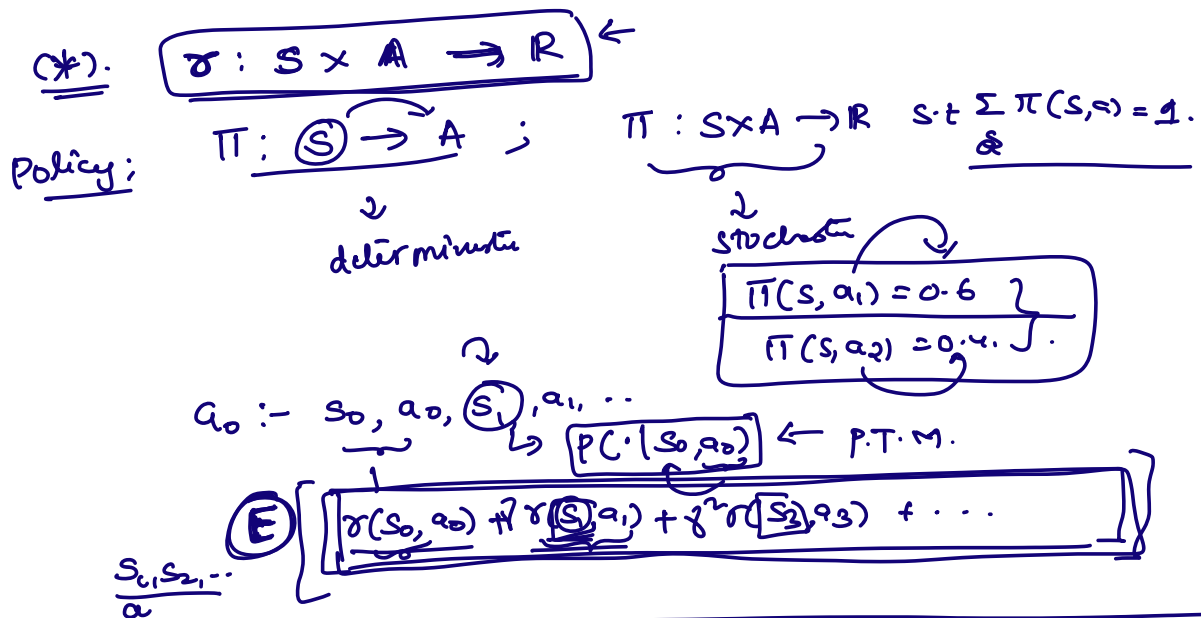 (*). r : S × A → R ←
Policy: Π : S → A ; Π : S×A → R s.t Σ π(s,a) = 1.
a
deterministic stochastic
Π(s, a1) = 0.6
Π(s, a2) = 0.4.
G0 :- s0, a0, s1, a1, ..
P(·|s0,a0) ← P.T.M.
E [ r(s0, a0) + γ r(s1, a1) + γ² r(s3, a3) + · · · ]
s1, s2, ..
a